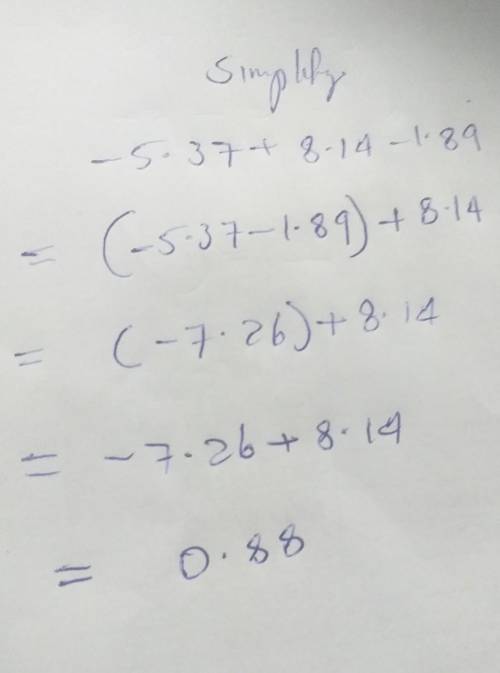 Simplify
-5.37+ 8.14 -1.89
= (-5.37-1.89)+8.14
= (-7.26)+8.14
= -7.26+8.14
= 0.88